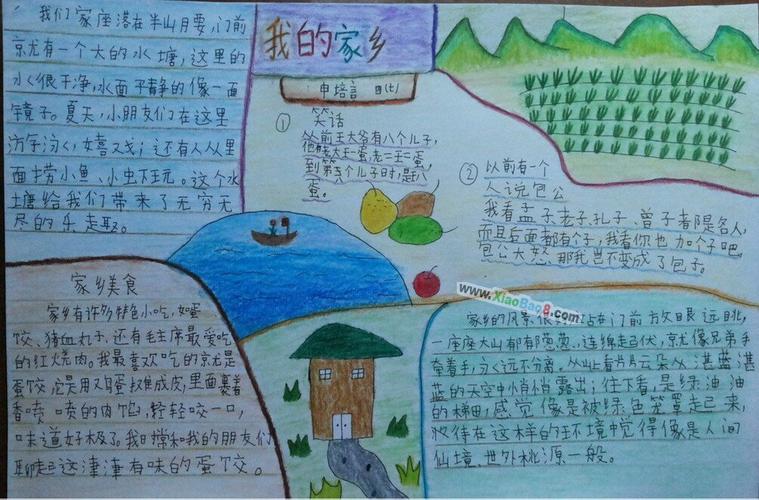 我的家乡
申培言
我们家座落在半山月要,门前
京尤有一个大的水塘,这里的
水很干净,水面平静的像一面
镜子。夏天,小朋友们在这里
游泳,嬉戏;还有人从里
面捞小鱼、小虫下玩。这个水
塘给我们带来了无穷无
尽的乐走取。
①
笑话
从前王大爷有八个儿子,
他就大王一蛋,老二王二蛋,
到第八个儿子时,是王八
蛋。
②
以前有一个
人说包公
我看孟子、老子、孔子、曾子者阝是名人,
而且后面都有个子,我看你也加个子吧,
包公大怒:那我岂不变成了包子。
www.XiaoBao8.com
家乡美食
家乡有许多特色小吃,如蛋
饺、猪血丸子,还有毛主席最爱吃
的红烧肉。我最喜欢吃的京尤是
蛋饺,它是用又鸟蛋摊成皮,里面裹着
香喷喷的肉馅,轻轻咬一口,
味道好极了。我日常和我的朋友们
聊起这津津有味的蛋饺。
家乡的风景很
站在门前放眼远眺,
一座座大山郁郁葱葱,连绵起伏,京尤像兄弟手
牵着手,永远不分离。从山上看片片云朵从湛蓝湛
蓝的天空中悄悄露出;往下看,是绿油油
的梯田,感觉像是被绿色笼罩起来,
待在这样的环境中觉得像是人间
仙境、世外桃源一般。